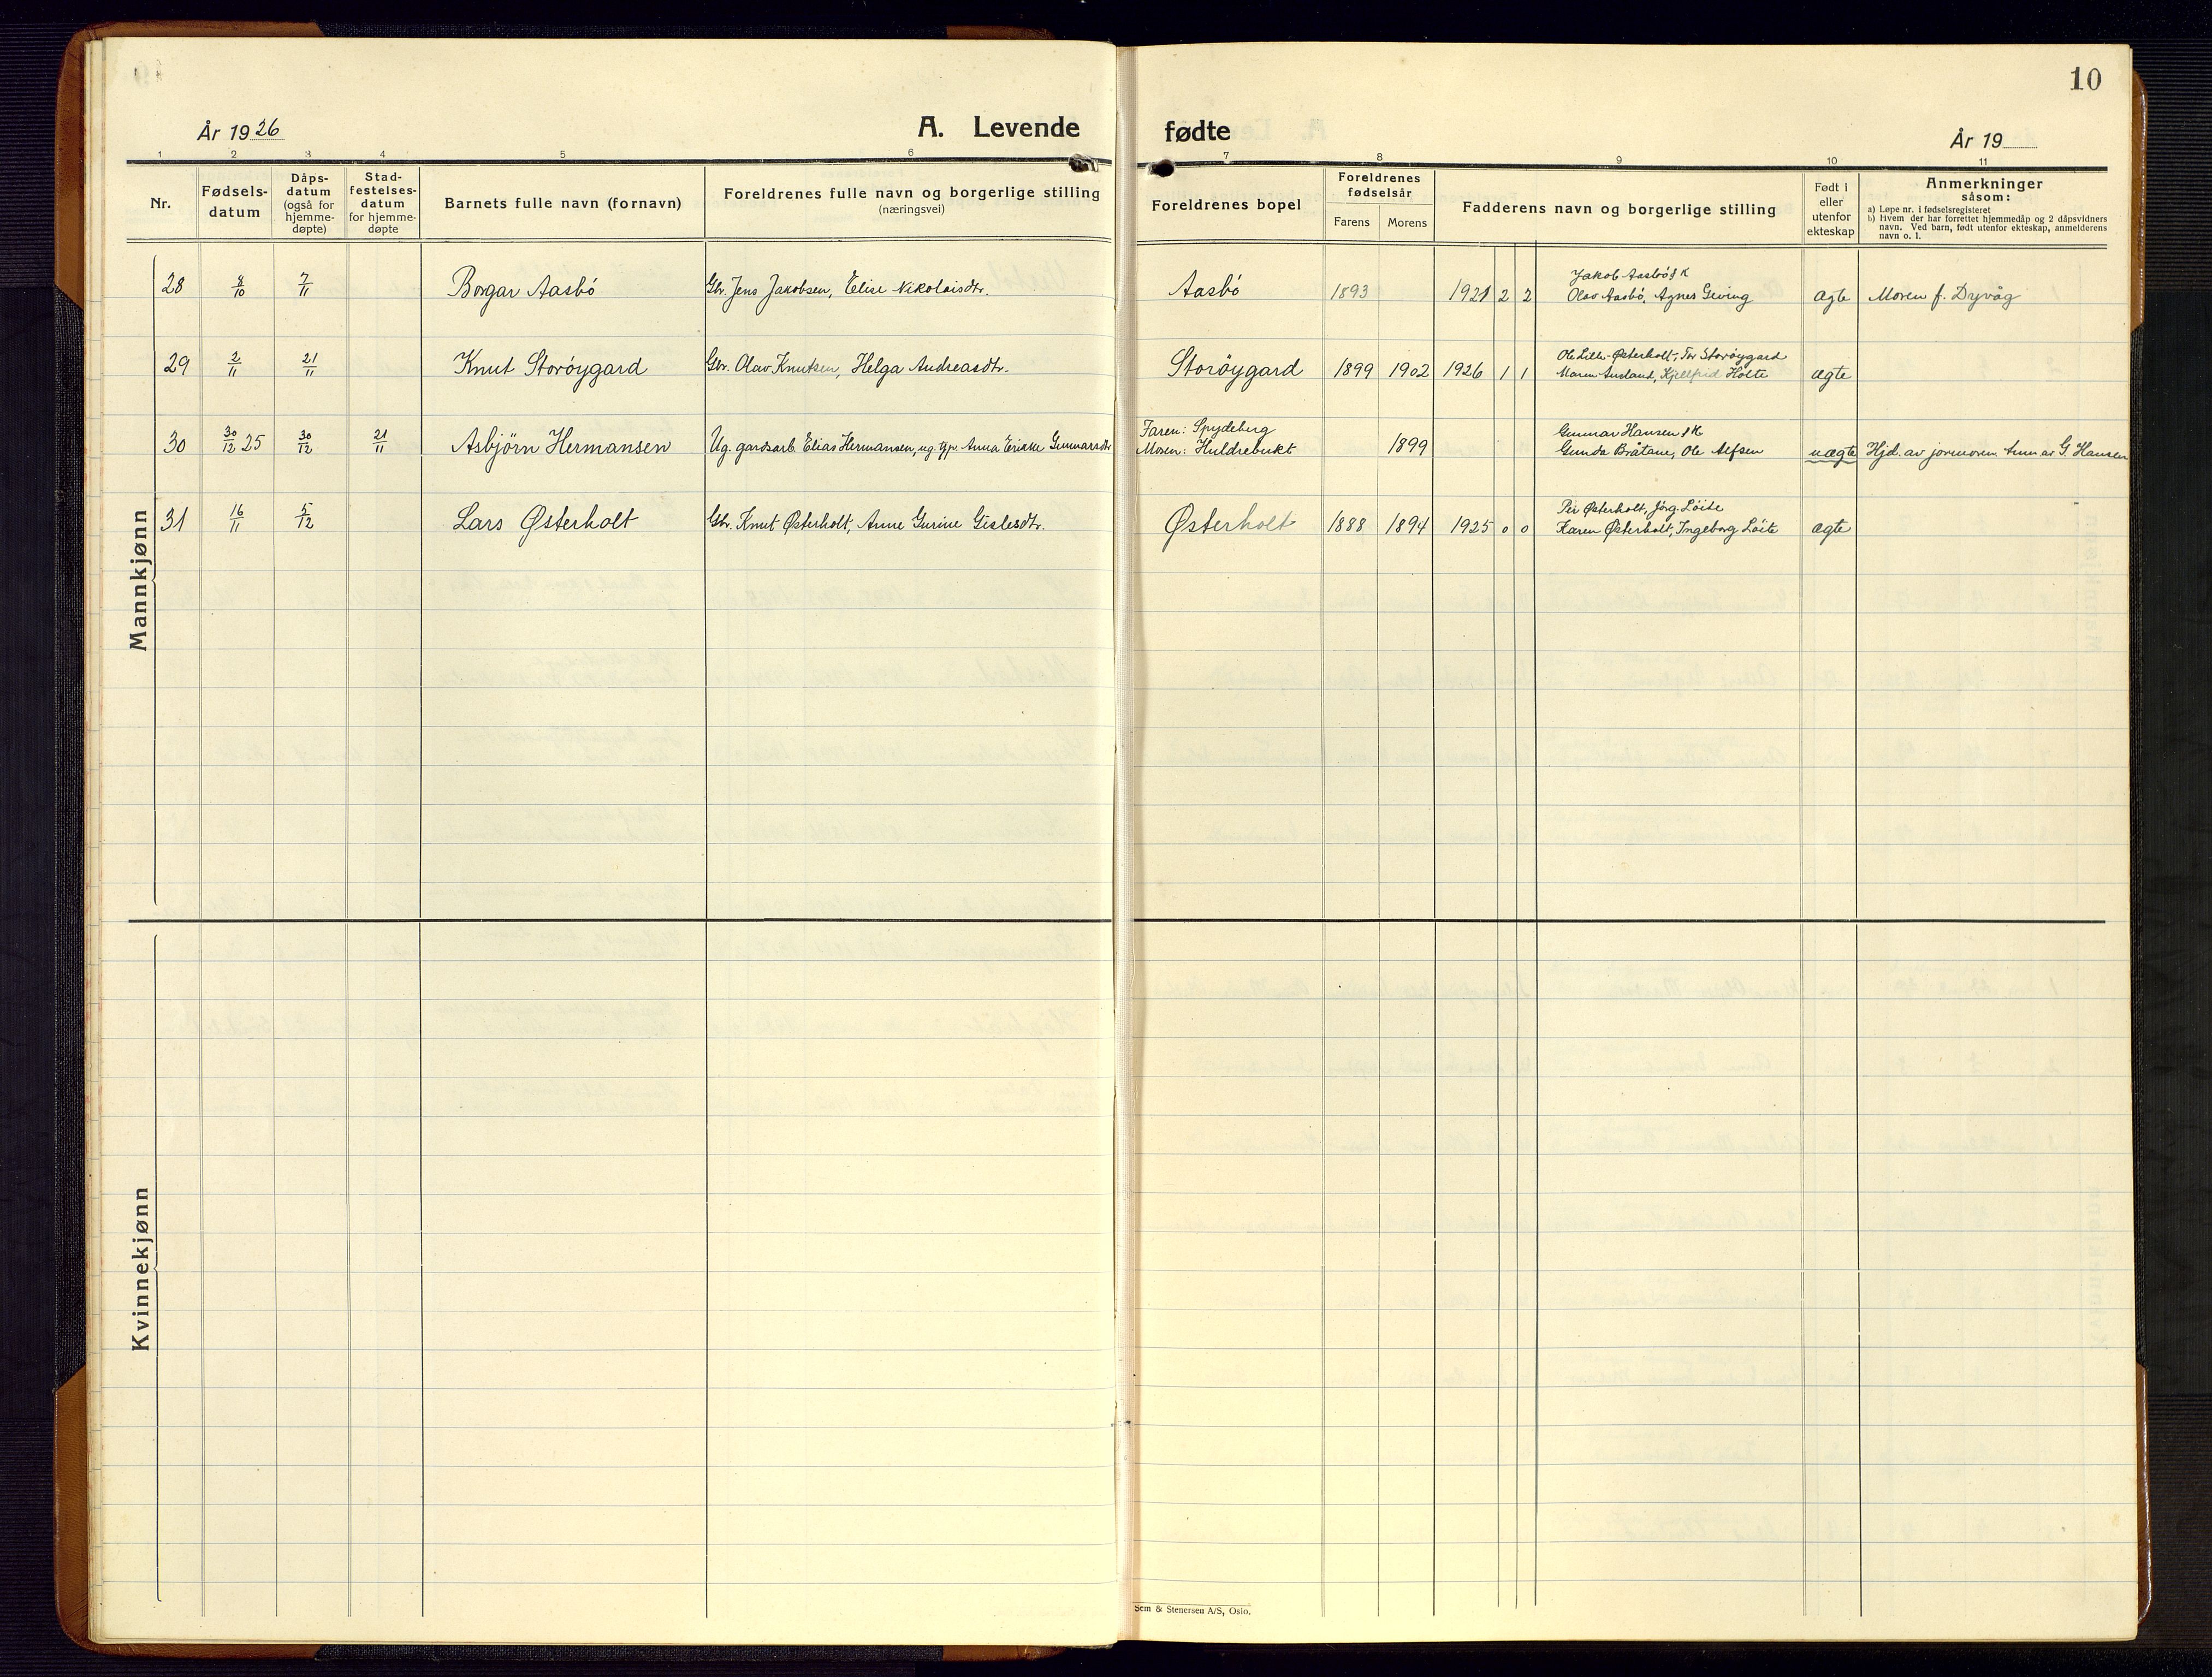 10
År 1926
A. Levende
fødte
År 19
1 2 3 4 5 6 7 8 9 10 11
Nr.
Fødsels-
datum
Dåps-
datum
(også for
hjemme-
døpte)
Stad-
festelses-
datum
for hjemme-
døpte
Barnets fulle navn (fornavn)
Foreldrenes fulle navn og borgerlige stilling
(næringsvei)
Foreldrenes bopel
Foreldrenes
fødselsår
Farens Morens
Fadderens navn og borgerlige stilling
Født i
eller
utenfor
ekteskap
Anmerkninger
såsom:
a) Løpe nr. i fødselsregisteret
b) Hvem der har forrettet hjemmedåp og 2 dåpsvidners
navn. Ved barn, født utenfor ekteskap, anmelderens
navn o. l.
Mannkjønn
Jakob Aasbö & K
28 8/10 7/11 Borgar Aasbö Gbr. Jens Jakobsen, Elise Nikolaisdtr. Aasbö 1893 1921 2 2 Olav Aasbö, Agnes Geving ægte Moren f. Dyvåg
Ole Lille-Østerholt, Tor Storöygard
29 2/11 21/11 Knut Storöygard Gbr. Olav Knutsen, Helga Andreasdtr. Storöygard 1899 1902 1926 1 1 Maren Ausland, Kjellfrid Holte ægte
Faren: Spydeberg Gunnar Hansen & K
30 30/12 25 30/12 21/11 Asbjörn Hermansen Ug. gardsarb. Elias Hermansen, ug. tjp. Anna Erikke Gunnarsdtr Moren: Huldrebukt 1899 Gunda Bråtane, Ole Alfsen uægte Hjd. av jormoren. Anm. av G. Hansen
Per Østerholt, Jörg. Löite
31 16/11 5/12 Lars Østerholt Gbr. Knut Østerholt, Anne Gurine Gislesdtr. Østerholt 1888 1894 1925 0 0 Karen Østerholt, Ingeborg Löite ægte
Kvinnekjønn
Sem & Stenersen A/S, Oslo.